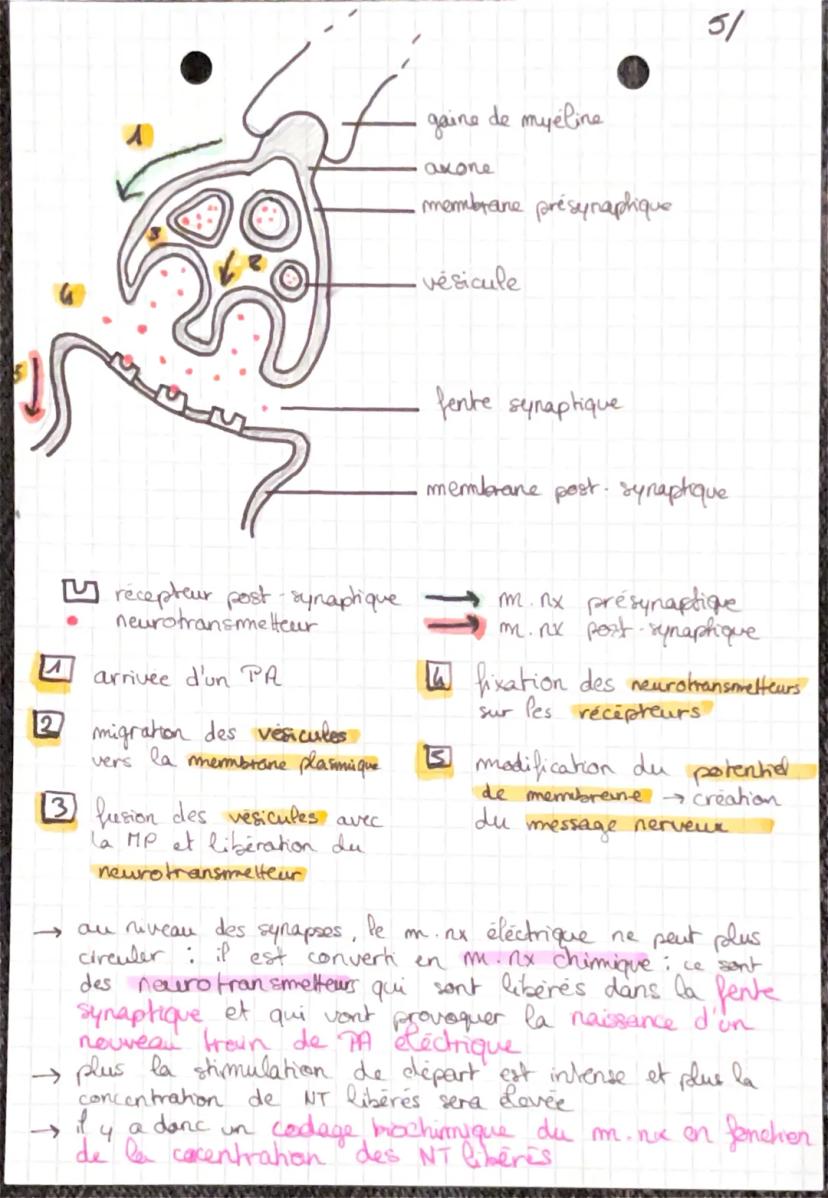 5/
1
gaine de myéline
axone
membrane présynaptique
3
2
vésicule
4
5
fente synaptique
membrane post-synaptique
récepteur post-synaptique
neurotransmetteur
m.nx présynaptique
m.nx post-synaptique
1 arrivée d'un PA
2 migration des vésicules
vers la membrane plasmique
3 fusion des vésicules avec
la MP et libération du
neurotransmetteur
4 fixation des neurotransmetteurs
sur les récepteurs
5 modification du potentiel
de membrane → création
du message nerveux
→ au niveau des synapses, le m.nx électrique ne peut plus
circuler : il est converti en m.nx chimique : ce sont
des neurotransmetteurs qui sont libérés dans la fente
synaptique et qui vont provoquer la naissance d'un
nouveau train de PA électrique
→ plus la stimulation de départ est intense et plus la
concentration de NT libérés sera élevée
→ il y a donc un codage biochimique du m.nx en fonction
de la cocentration des NT libérés